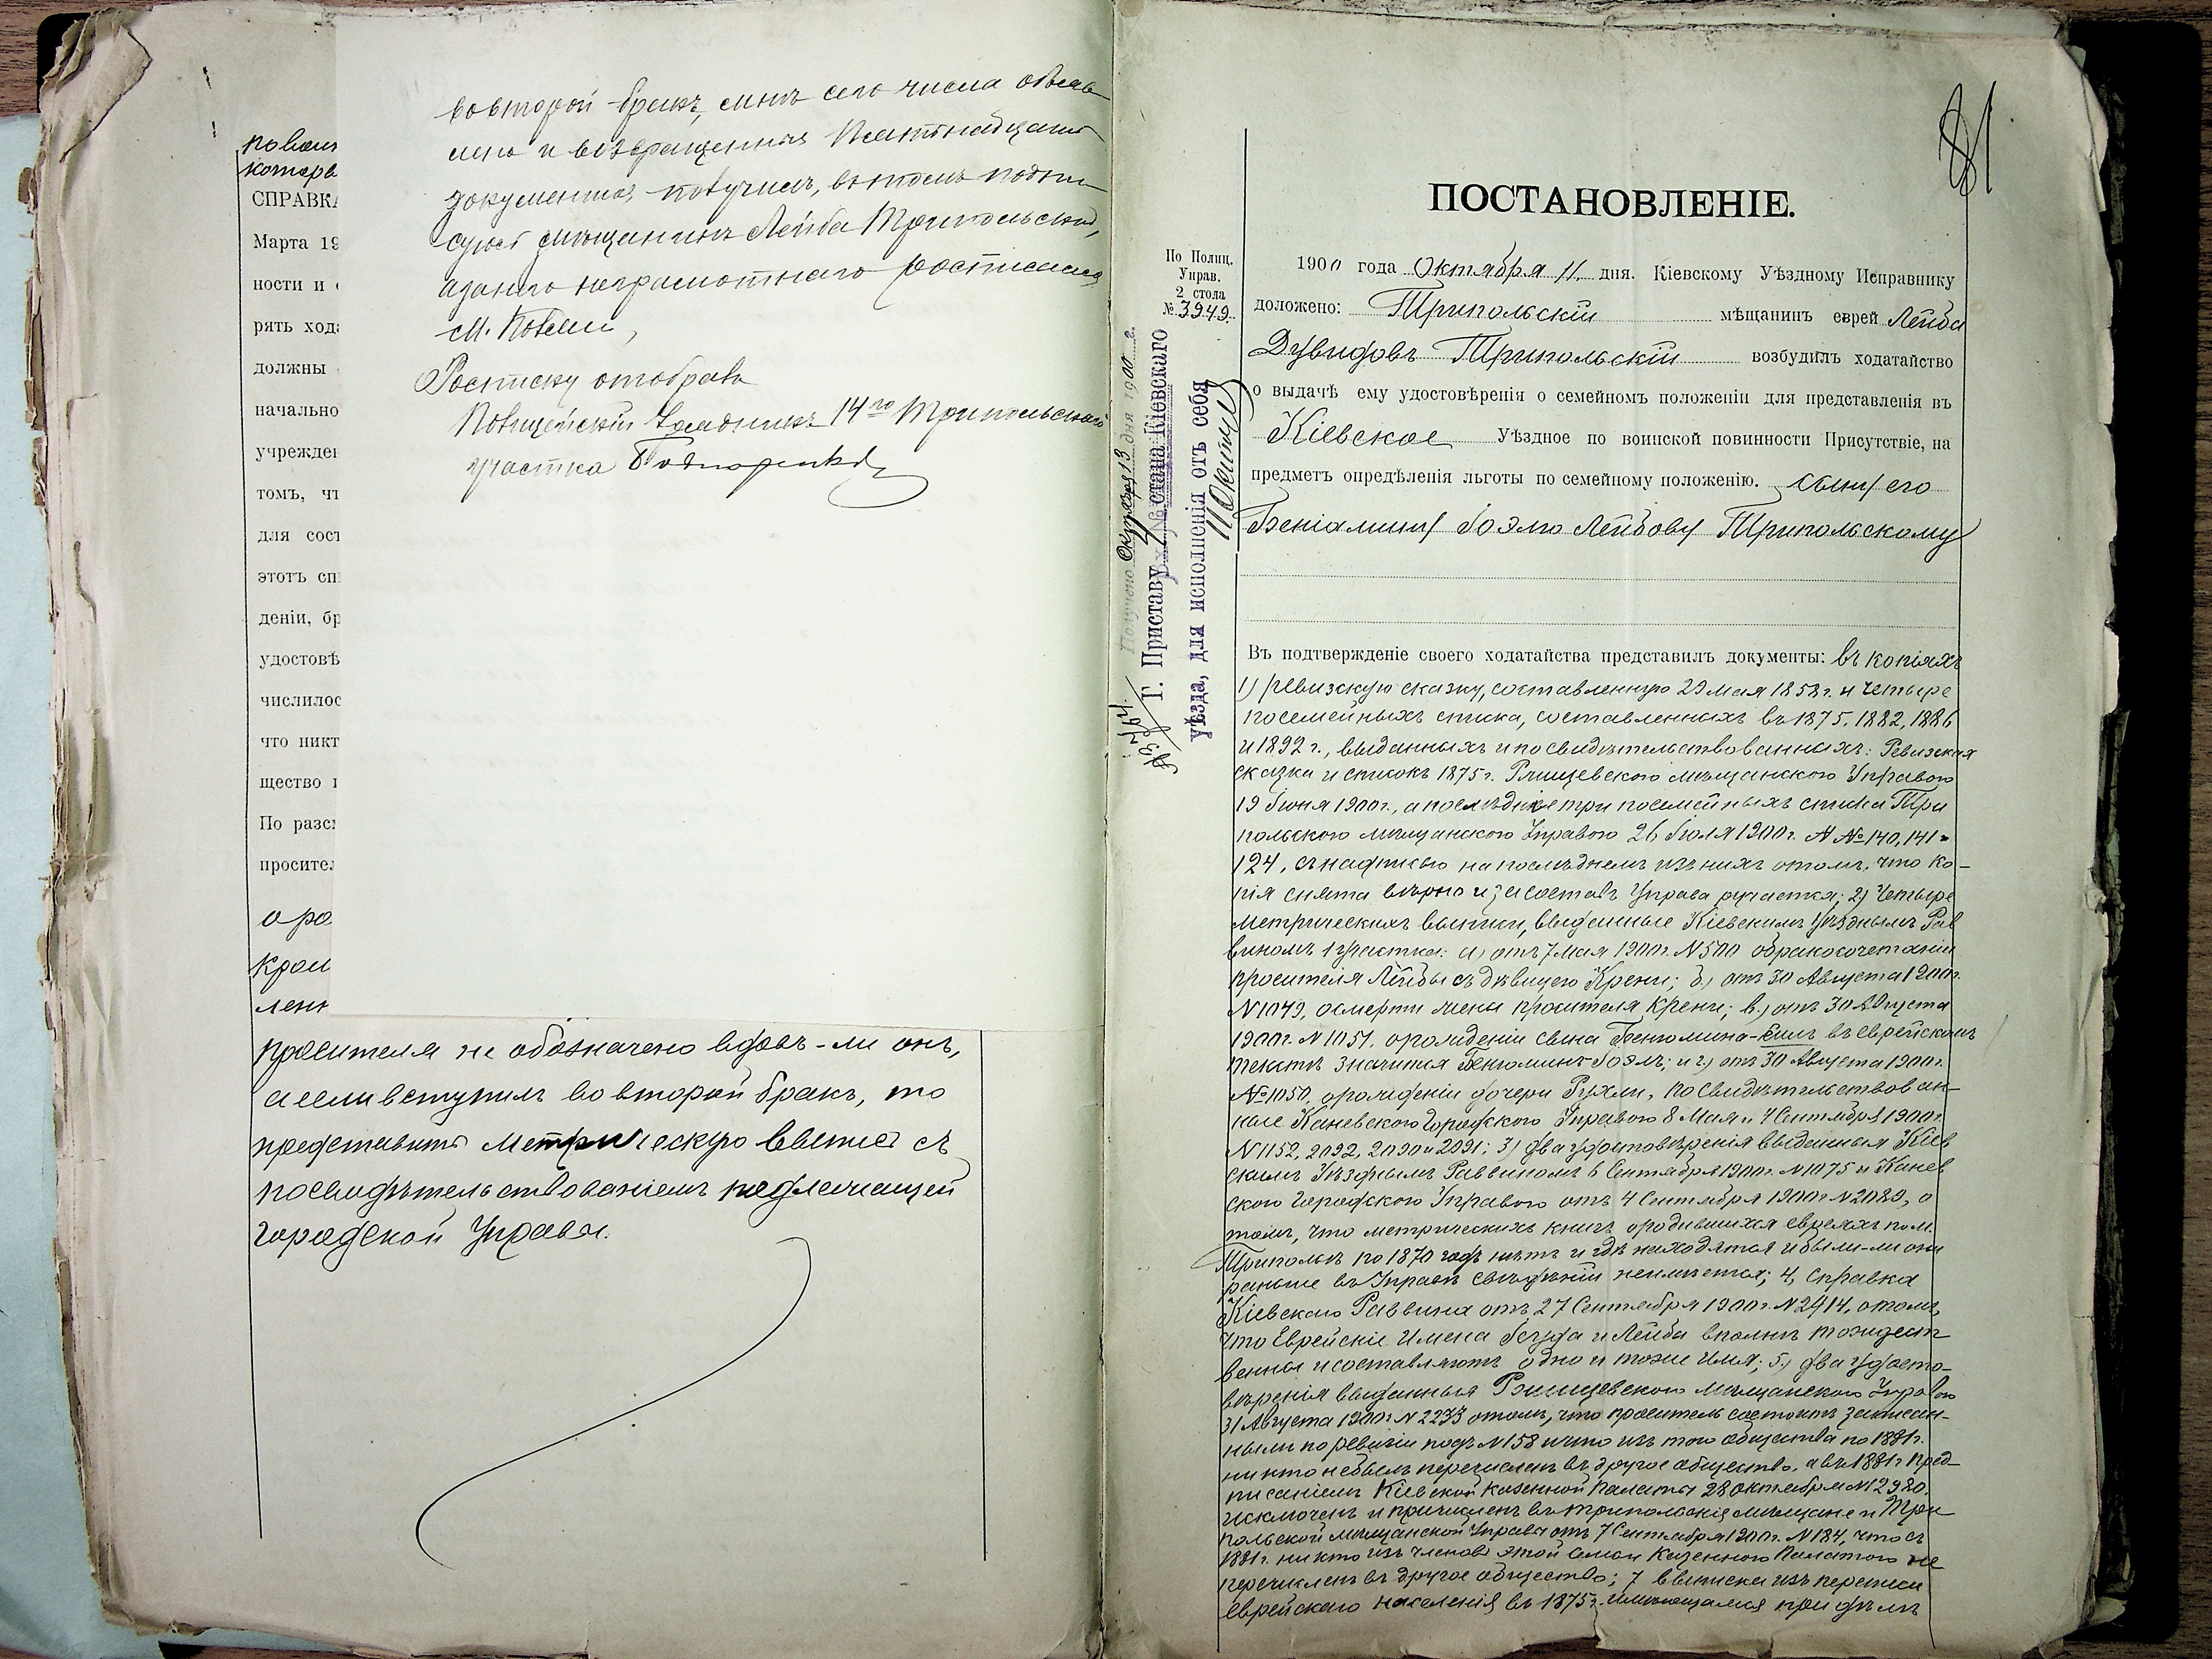 во второй бракъ, мнѣ сего числа объяв-
лено и возвращенные Пятнадцать
документовъ получилъ, въ томъ подпи-
суюсь мѣщанинъ Лейба Трипольскій,
а за него неграмотнаго росписался
М. Повелий,
Росписку отобралъ
Полицейскій Урядникъ 14го Трипольскаго
участка
СПРАВКА
Марта 19
ности и
рять хода
должны
начально
учрежден
томъ, чт
для сост
этотъ сп
деніи, бр
удостовѣ
числилос
что никт
щество
По разсм
просител
о ро
кром
лен
просителя не обозначено вдовъ-ли онъ,
а если вступилъ во второй бракъ, то
представить метрическую выпись съ
посвидѣтельствованіемъ надлежащей
городской Управы.
81
ПОСТАНОВЛЕНІЕ.
По Полиц.
Управ.
2 стола
№ 3949.
1900 года Октября 11 дня. Кіевскому Уѣздному Исправнику
доложено: Трипольскій мѣщанинъ еврей Лейба
Дувидовъ Трипольскій возбудилъ ходатайство
о выдачѣ ему удостовѣренія о семейномъ положеніи для представленія въ
Кіевское Уѣздное по воинской повинности Присутствіе, на
предметъ опредѣленія льготы по семейному положенію. сыну его
Беніамину Іоэлю Лейбову Трипольскому
Получено Октября 13 дня 1900 г.
Г. Приставу стана Кіевскаго
уѣзда, для исполненія отъ себя
11 Октяб
Въ подтвержденіе своего ходатайства представилъ документы: въ копіяхъ
1) ревизскую сказку, составленную 29 мая 1858 г. и четыре
посемейныхъ списка, составленныхъ въ 1875, 1882, 1886
и 1892 г., выданныхъ и посвидѣтельствованныхъ: Ревизская
сказка и списокъ 1875 г. Ржищевскою мѣщанскою Управою
19 Іюня 1900 г., а послѣднія три посемейныхъ списка Три
польскою мѣщанскою Управою 26 Іюля 1900 г. № 140, 141 и
124, съ надписью на послѣднемъ изъ нихъ о томъ, что ко-
пія снята вѣрно и за составъ Управа ручается; 2) Четыре
метрическихъ выписи, выданные Кіевскимъ Уѣзднымъ Рав
виномъ 1 участка: а) отъ 7 Мая 1900 г. № 500 о бракосочетаніи
просителя Лейбы съ дѣвицею Крени; б) отъ 30 Августа 1900 г.
№ 1049, о смерти жены просителя Крени; в) отъ 30 Августа
1900 г. № 1051, о рожденіи сына Бенюмина-Еиль въ еврейскомъ
текстѣ значится Бенюминъ-Іоэль; и г) отъ 30 Августа 1900 г.
№ 1050, о рожденіи дочери Рухли, посвидѣтельствован-
ные Каневскою Городскою Управою 8 Мая и 4 Сентября 1900 г.
№ 1152, 2092, 2090 и 2091; 3) два удостовѣренія выданныя Кіев
скимъ Уѣзднымъ Раввиномъ 6 Сентября 1900 г. № 1075 и Канев
скою Городскою Управою отъ 4 Сентября 1900 г. № 2089, о
томъ, что метрическихъ книгъ о родившихся евреяхъ по м.
Триполью по 1870 годъ нѣтъ и гдѣ находятся и были-ли они
раньше въ Управѣ свѣдѣній не имѣется; 4, справка
Кіевскаго Раввина отъ 27 Сентября 1900 г. № 2914, о томъ,
что Еврейскіе Имена Іегуда и Лейба вполнѣ тождест
венны и составляютъ одно и тоже имя; 5) два удосто-
вѣренія выданныя Ржищевскою мѣщанскою Управою
31 Августа 1900 г. № 2233 о томъ, что проситель состоитъ записан-
нымъ по ревизіи подъ № 158 и что изъ того общества по 1881 г.
никто небылъ перечисленъ въ другое общество, а въ 1881 г. пред-
писаніемъ Кіевской казенной Палаты 28 октября № 12980.
исключенъ и причисленъ въ Трипольскіе мѣщане и Три
польской мѣщанской Управы отъ 7 Сентября 1900 г. № 184, что съ
1881 г. никто изъ членовъ этой семьи Казенною Палатою не
перечисленъ въ другое общество; 7 выписки изъ переписи
еврейскаго населенія въ 1875 г. имѣющаяся при дѣлѣ